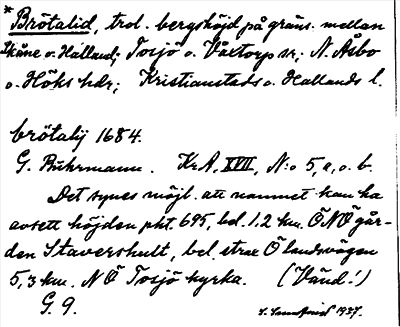 * Brötalid, trol. bergshöjd på gräns. mellan
Skåne o. Halland; Tosjö o. Våxtorp sr; N. Åsbo
o. Höks hdr; Kristianstads o. Hallands l.
brötalij 1684.
G. Buhrmann. KrA, XVII, N:o 5, a, o. b.
Det synes möjl. att namnet kan ha
avsett höjden pkt. 695, bel. 1.2 km. ÖNÖ går-
den Stavershult, bel. strax Ö landsvägen
5,3 km. NÖ Tosjö kyrka. (Vänd!)
G. 9. 1927.